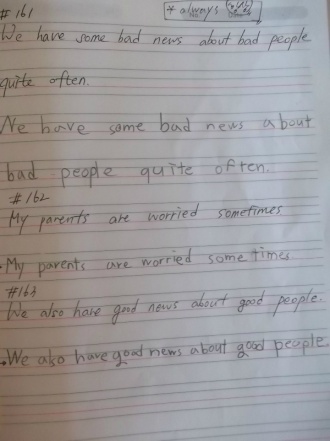 #161
* always
We have some bad news about bad people
quite often.
We have some bad news about
bad people quite often.
#162
My parents are worried sometimes
My parents are worried some times
#163
We also have good news about good people.
We also have good news about good people.